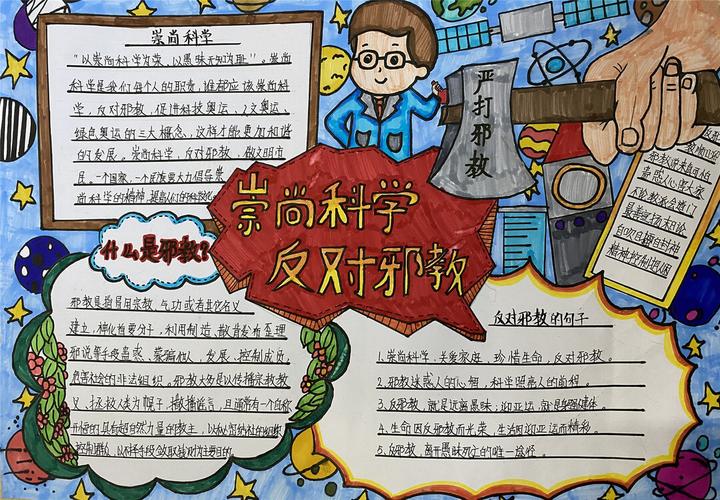 崇尚科学
"以崇尚科学为荣，以愚昧无知为耻"。崇尚
科学是我们每个人的职责，谁都应该崇尚科
学，反对邪教，促进科技奥运、人文奥运、
绿色奥运的三大概念，这样才能更加和谐
的发展。崇尚科学，反对邪教，做文明市
民。一个国家、一个民族要大力倡导崇
尚科学的精神，提高人们的科学
严打邪教
崇尚科学
反对邪教
什么是邪教？
邪教是指冒用宗教、气功或者其它名义
建立，神化首要分子，利用制造、散布歪理
邪说等手段蛊惑、蒙骗他人，发展、控制成员，
危害社会的非法组织。邪教大多是以传播宗教教
义、拯救人类为幌子，散播谣言，且通常有一个自称
开悟的具有超自然力量的教主，以
以不择手段敛取钱财为主要目的。
邪教说来真可怕
蛊惑人心害大家
不论教义念歪了
自吹自擂自封神
精神控制
反对邪教的句子
1.崇尚科学，关爱家庭，珍惜生命，反对邪教。
2.邪教迷惑人的心智，科学照亮人的前程。
3.反邪教，就是远离愚昧；迎亚运，就是
4.生命因反邪教而光荣，生活因迎亚运而精彩。
5.反邪教，离开愚昧死亡的唯一途径。